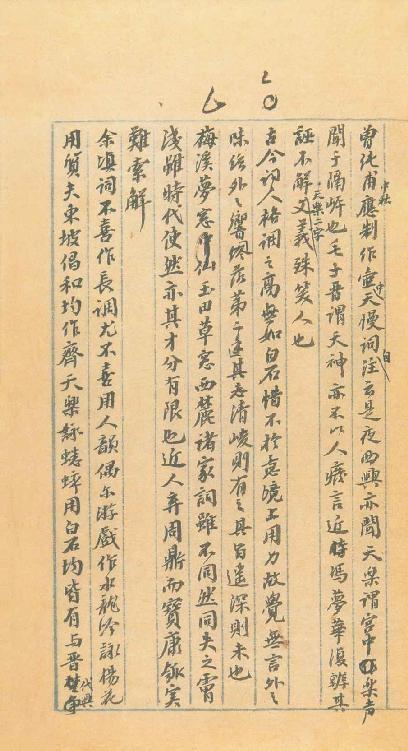 曾純甫中秋應制作壺中天慢詞自注云是夜西興亦聞天樂謂宮中樂声
聞于隔岸也毛子晉謂天神亦不以人廢言近時馮夢華復辨其
誣不解天樂二字文義殊笑人也
古今詞人格調之高無如白石惜不於意境上用力故覺無言外之
味絃外之響終落第二手其志清峻則有之其旨遙深則未也
梅溪夢窗中仙玉田草窗西麓諸家詞雖不同然同失之膚
淺雖時代使然亦其才分有限也近人弃周鼎而寶康瓠實
難索解
余填詞不喜作長調尤不喜用人韻偶尔游戲作水龍吟詠楊花
用質夫東坡倡和均作齊天樂詠蟋蟀用白石均皆有与晉代興